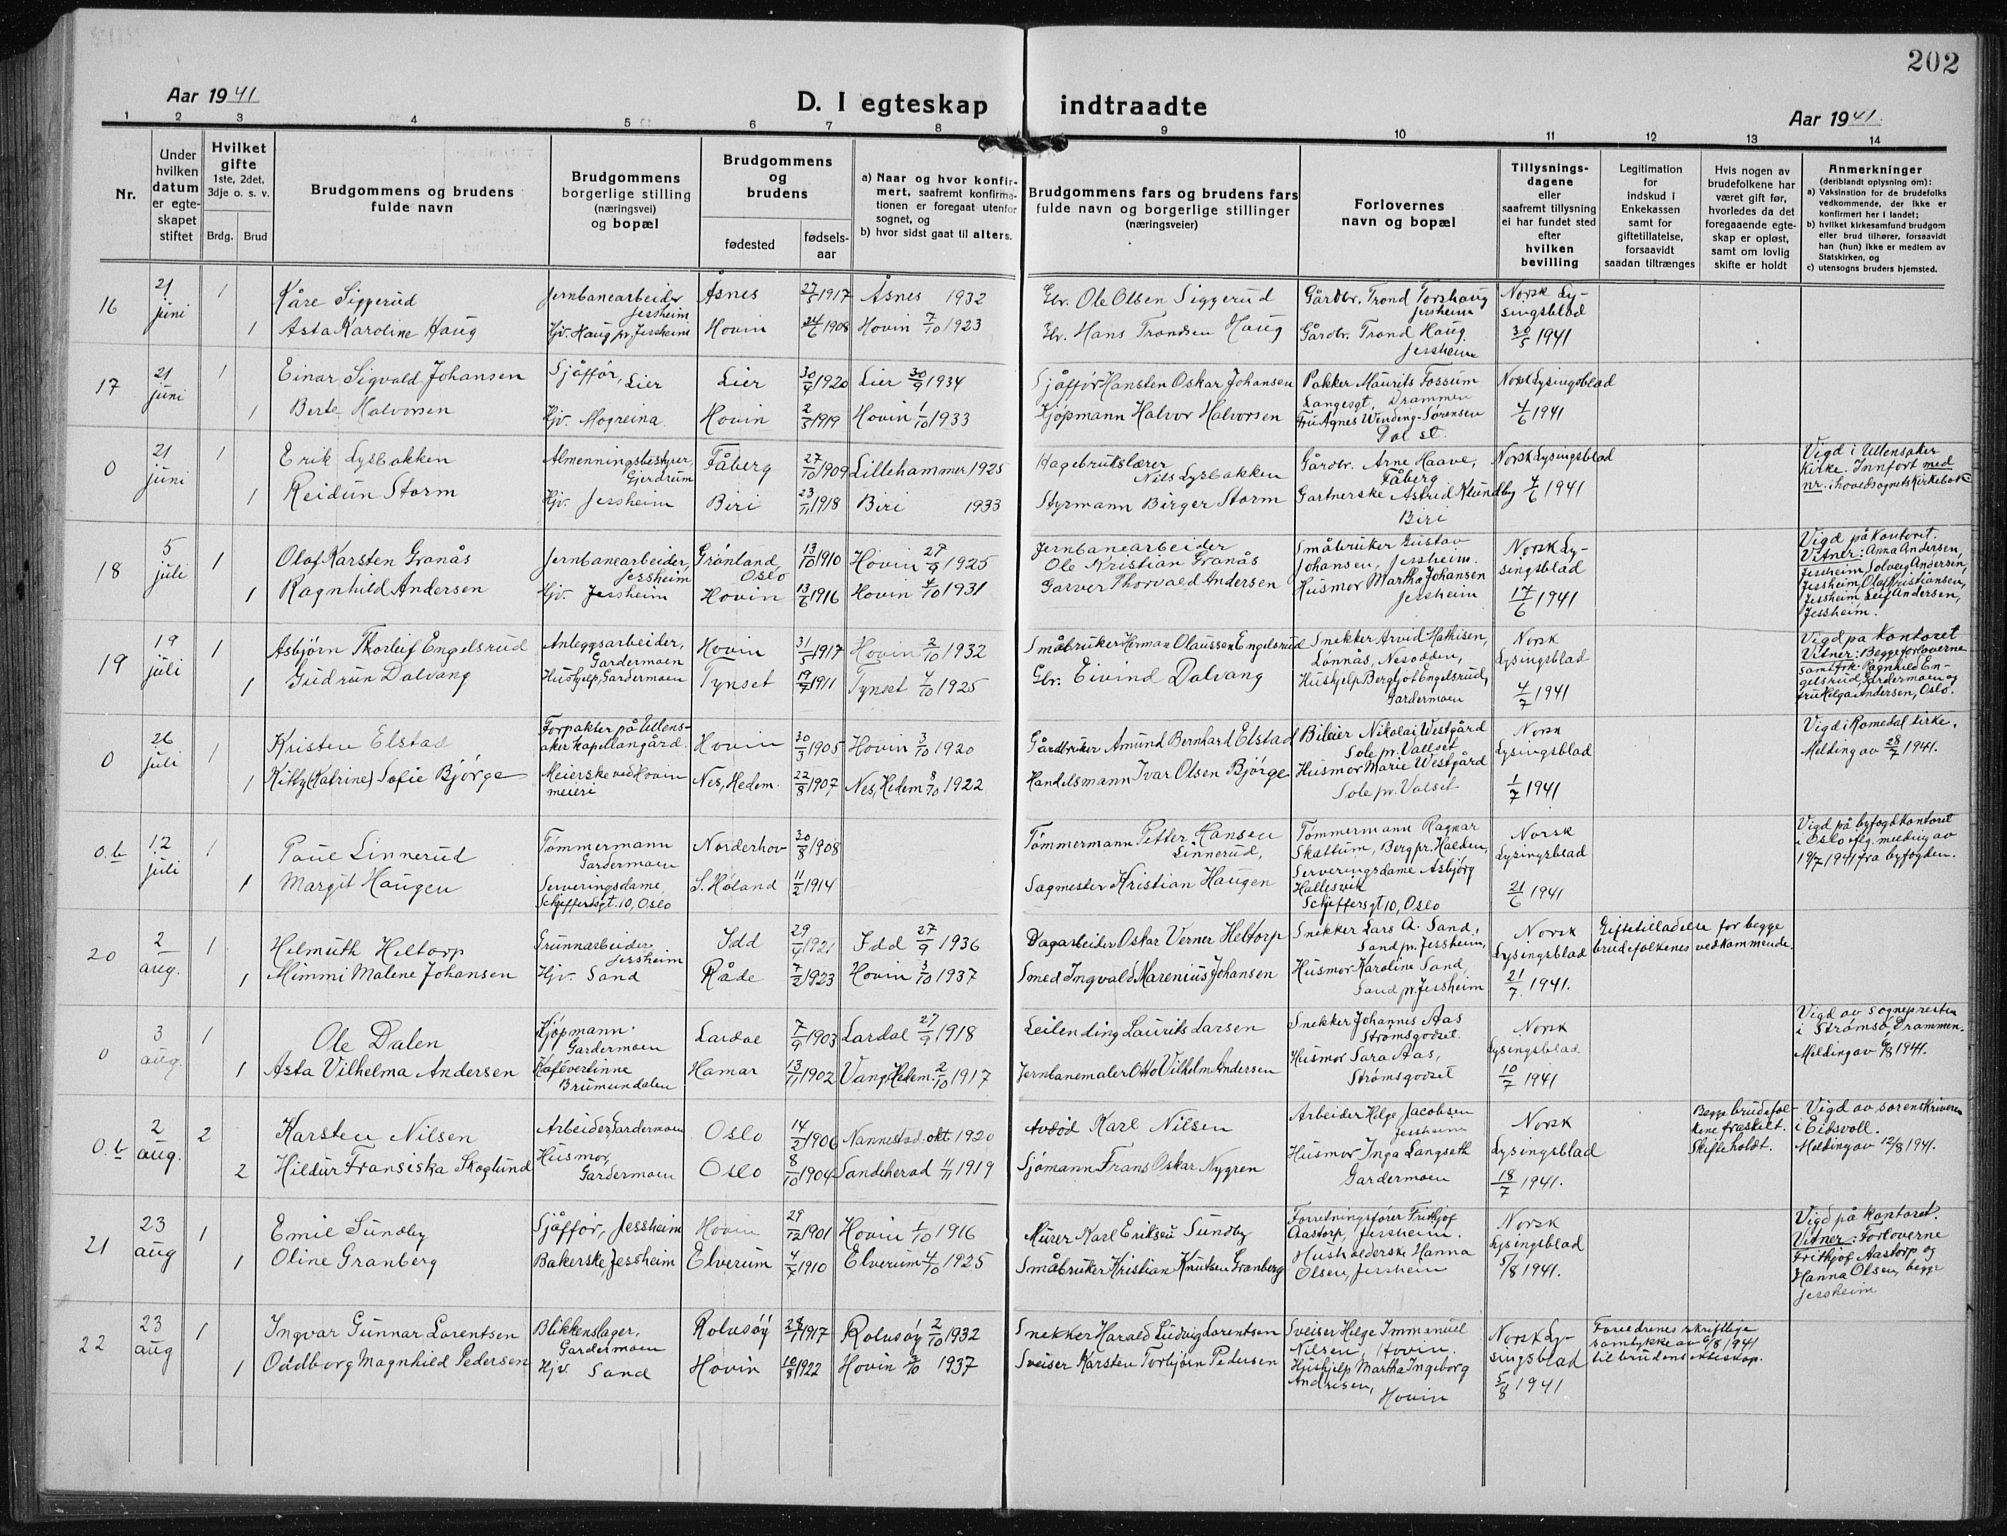 202
Aar 1941
D. I egteskap indtraadte
Aar 1941.
1 2 3 4 5 6 7 8 9 10 11 12 13 14
Nr.
Under hvilken datum er egteskapet stiftet
Hvilket gifte 1ste, 2det, 3dje o. s. v.
Brdg. Brud
Brudgommens og brudens fulde navn
Brudgommens borgerlige stilling (næringsvei) og bopæl
Brudgommens og brudens
fødested
fødsels-aar
a) Naar og hvor konfirmert, saafremt konfirmationen er foregaat utenfor sognet, og
b) hvor sidst gaat til alters.
Brudgommens fars og brudens fars fulde navn og borgerlige stillinger (næringsveier)
Forlovernes navn og bopæl
Tillysningsdagene eller saafremt tillysning ei har fundet sted efter hvilken bevilling
Legitimation for indskud i Enkekassen samt for giftetillatelse, forsaavidt saadan tiltrænges
Hvis nogen av brudefolkene har været gift før, hvorledes da det foregaaende egteskap er opløst, samt om lovlig skifte er holdt
Anmerkninger (deriblandt oplysning om):
a) Vaksination for de brudefolks vedkommende, der ikke er konfirmert her i landet;
b) hvilket kirkesamfund brudgom eller brud tilhører, forsaavidt han (hun) ikke er medlem av Statskirken, og
c) utensogns bruders hjemsted.
16 21 juni 1 Kåre Siggerud Jernbanearbeider Jessheim Åsnes 27/5 1917 Åsnes 1932 Gbr. Ole Olsen Siggerud Gårdbr. Trond Torshaug Jessheim Norsk Lysingsblad 30/5 1941
1 Asta Karoline Haug Hjv. Haug pr. Jessheim Hovin 24/6 1908 Hovin 7/10 1923 Gbr. Hans Trondsen Haug Gårdbr. Trond Haug Jessheim
17 21 juni 1 Einar Sigvald Johansen Sjåffør, Lier Lier 30/4 1920 Lier 30/9 1934 Sjåffør Hansten Oskar Johansen Pakker Maurits Fossum Langesgt, Drammen Norsk Lysingsblad 4/6 1941
1 Berte Halvorsen Hjv. Mogreina Hovin 2/3 1919 Hovin 1/10 1933 Kjøpmann Halvor Halvorsen Fru Agnes Wenberg-Sørensen Dal st.
0 21 juni 1 Erik Lysbakken Almenningsbestyrer, Gjerdrum Fåberg 27/10 1909 Lillehammer 1925 Hagebrukslærer Nils Lysbakken Gårdbr. Arne Haave, Fåberg Norsk Lysingsblad 4/6 1941 Vigd i Ullensaker Kirke. Innført med nr. i hovedsognets Kirkebok
1 Reidun Storm Hjv. Jessheim Biri 23/11 1918 Biri 1933 Styrmann Birger Storm Gartnerske Astrid Klundby Biri
18 5 juli 1 Olaf Karsten Granås Jernbanearbeider, Jessheim Grønland, Oslo 13/10 1910 Hovin 27/9 1925 Jernbanearbeider Ole Kristian Granås Småbruker Gustav Johansen, Jessheim. Norsk Lysingsblad 17/6 1941 Vigd på Kontoret. Vitner: Anna Andersen, Jessheim, Solveig Andersen, Jessheim, Olaf Kristiansen, Jessheim Leif Andersen, Jessheim.
1 Ragnhild Andersen Hjv. Jessheim Hovin 13/6 1916 Hovin 4/10 1931 Garver Thorvald Andersen Husmor Martha Johansen Jessheim
19 19 juli 1 Asbjørn Thorleif Engelsrud Anleggsarbeider, Gardermoen Hovin 31/5 1917 Hovin 2/10 1932 Småbruker Herman Olausson Engelsrud Snekker Arvid Mathisen, Lønnås, Nesodden, Norsk Lysingsblad 4/7 1941 Vigd på Kontoret Vitner: Begge forloverne samt frk. Ragnhild Engelsrud, Gardermoen og fru Helga Andersen, Oslo.
1 Gudrun Dalvang Hushjelp, Gardermoen Tynset 19/7 1911 Tynset 4/10 1925 Gbr. Eivind Dalvang Hushjelp Bergljot Engelsrud, Gardermoen
0 26 juli 1 Kristen Elstad Forpakter på Ullensaker Kapellangård. Hovin 30/3 1905 Hovin 3/10 1920 Gårdbruker Amund Bernhard Elstad Bileier Nikolai Westgård Sole pr. Vallset Norsk Lysingsblad 1/7 1941 Vigd i Romedal kirke. Melding av 28/7 1941.
1 Kitty (Katrine) Sofie Bjørge Meierske ved Hovin meieri Nes, Hedem. 22/8 1907 Nes, Hedem 8/10 1922 Handelsmann Ivar Olsen Bjørge Husmor Marie Westgård Sole pr. Valset
0.b 12 juli 1 Paul Linnerud Tømmermann Gardermoen Norderhov 30/8 1908 Tømmermann Petter Hansen Linnerud, Tømmermann Ragnar Skattum, Berg pr. Halden, Norsk Lysingsblad 21/6 1941 Vigd på byfogdkontoret i Oslo iflg. melding av 19/7 1941 fra byfogden.
1 Margit Haugen Serveringsdame, Schjeffersgt. 10, Oslo S. Høland 11/2 1914 Sagmester Kristian Haugen Serveringsdame Asbjørg Hallesvik Schjeffersgt 10, Oslo
20 2 aug. 1 Helmuth Heltorp Grunnarbeider, Jessheim Idd 29/4 1921 Idd 27/9 1936 Dagarbeider Oskar Verner Heltorp Snekker Lars A. Sand, Sand pr. Jessheim, Norsk Lysingsblad 21/7. 1941. Giftetilladelse for begge brudefolkenes vedkommende.
1 Mimmi Malene Johansen Hjv. Sand Råde 7/2 1923 Hovin 3/10 1937 Smed Ingvald Marenius Johansen Husmor Karoline Sand, Sand pr. Jessheim
0 3 aug. 1 Ole Dalen Kjøpmann. Gardermoen Lardal 7/9 1903 Lardal 27/9 1918 Leilending Laurits Larsen Snekker Johannes Aas Strømsgodset. Norsk Lysingsblad 10/7 1941 Vigd av sognepresten i Strømsø, Drammen. Melding av 6/8 1941.
1 Asta Vilhelma Andersen Kafévertinne Brumunddalen Hamar 13/11 1902 Vang, Hedem. 2/10 1917 Jernbanemaler Otto Vilhelm Andersen Husmor Sara Aas, Strømsgodset
0.b 2 aug. 2 Karsten Nilsen Arbeider, Gardermoen Oslo 14/2 1906 Nannestad okt 1920 Avdød Karl Nilsen Arbeider Helge Jacobsen Jessheim Norsk Lysingsblad 18/7 1941. Begge brudefolkene fraskelt. Skifte holdt. Vigd av sorenskriveren i Eidsvoll. Melding av 12/8 1941.
2 Hildur Fransiska Skoglund Husmor, Gardermoen Oslo 8/10 1904 Sandeherad 11/11 1919 Sjømann Frans Oskar Nygren Husmor Inga Langseth Gardermoen
21 23 aug 1 Emil Sundby Sjåffør, Jessheim Hovin 29/12 1901 Hovin 1/10 1916 Murer Karl Eriksen Sundby Forretningsfører Frithjof Aastorp, Jessheim. Norsk Lysingsblad 5/8 1941. Vigd på kontoret. Vitner: Forloverne Frithjof Aastorp og Hanna Olsen, begge Jessheim
1 Oline Granberg Bakerske, Jessheim Elverum 4/7 1910 Elverum 4/10 1925 Småbruker Kristian Knutsen Granberg Husholderske Hanna Olsen, Jessheim
22 23 aug 1 Ingvar Gunnar Lorentsen Blikkenslager, Gardermoen Rolvsøy 28/1 1917 Rolvsøy 2/10 1932 Snekker Harald Ludvig Lorentsen Sveiser Helge Immanuel Nilsen, Hovin. Norsk Lysingsblad 5/8 1941 Foreldrenes skriftlige samtykke av 6/8 1941 til brudens ekteskap.
1 Oddborg Magnhild Pedersen Hjv. Sand Hovin 10/8 1922 Hovin 3/10 1937 Sveiser Karsten Torbjørn Pedersen Hushjelp Martha Ingeborg Andresen, Hovin